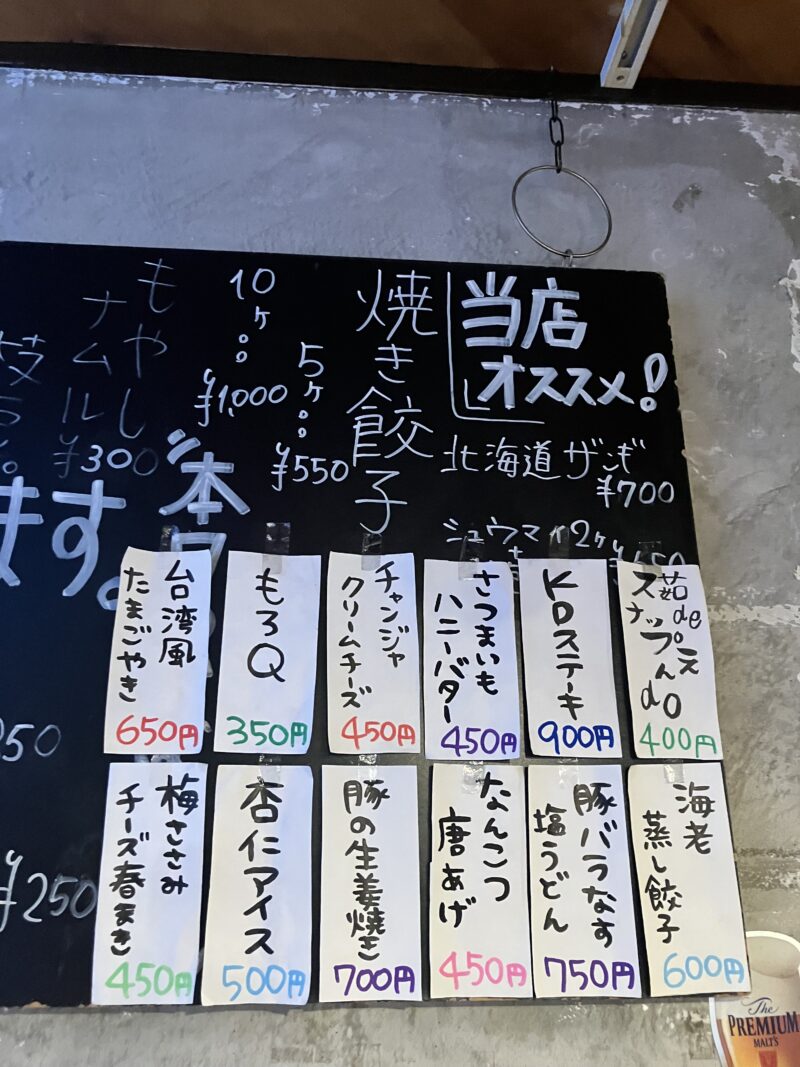 当店
オススメ!
北海道ザンギ
¥700
シュウマイ2ケ
焼き餃子
5ヶ。。
¥550
10ヶ。。
¥1,000
もやし
ナムル
¥300
ます。
250
¥250
茹de
スナップえんdo
400円
KDステーキ
900円
さつまいも
ハニーバター
450円
チャンジャ
クリームチーズ
450円
もろQ
350円
台湾風
たまごやき
650円
海老
蒸し餃子
600円
豚バラなす
塩うどん
750円
なんこつ
唐あげ
450円
豚の生姜焼き
700円
杏仁アイス
500円
梅ささみ
チーズ春まき
450円
The
PREMIUM
MALT'S